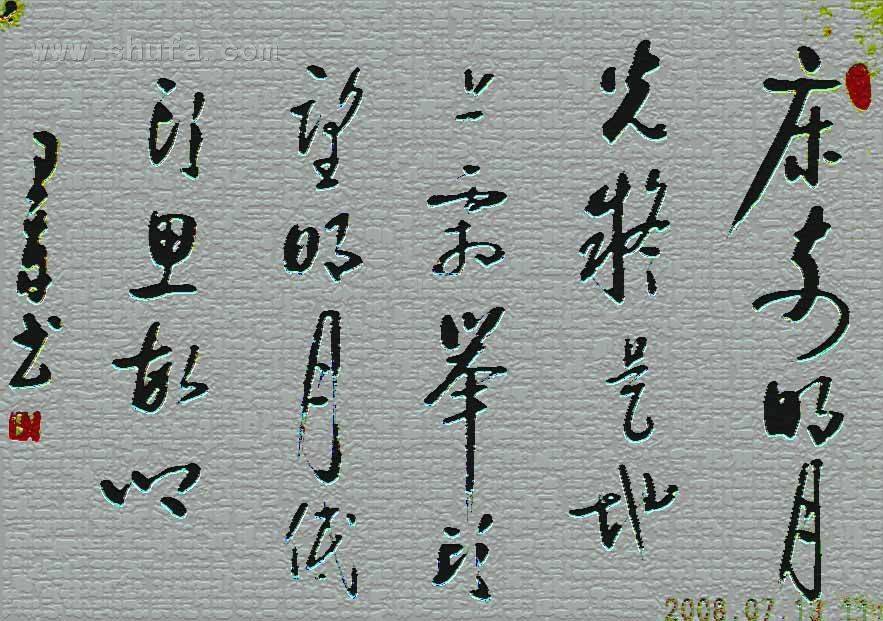 床前明月
光疑是地
上霜举头
望明月低
头思故乡
书
www.shufa.com
2008.07.13 11: